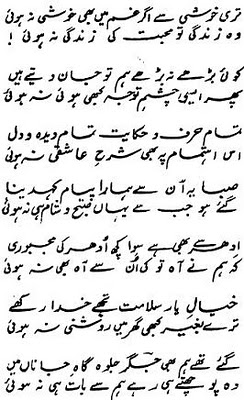 تری خوشی سے اگر غم میں بھی خوشی نہ ہوئی
وہ زندگی تو محبت کی زندگی نہ ہوئی !
کوئی بڑھے نہ بڑھے ہم تو جان دیتے ہیں
پھر ایسی چشمِ توجہ کبھی ہوئی نہ ہوئی
تمام حرف و حکایت تمام دیدہ و دل
اس اہتمام پہ بھی شرحِ عاشقی نہ ہوئی
صبا یہ اُن سے ہمارا پیام کہہ دینا
گئے ہو جب سے یہاں صبح و شام ہی نہ ہوئی
ادھر سے بھی ہے سوا کچھ اُدھر کی مجبوری
کہ ہم نے آہ تو کی اُن سے آہ بھی نہ ہوئی
خیالِ یار سلامت تجھے خدا رکھے
ترے بغیر کبھی گھر میں روشنی نہ ہوئی
گئے تھے ہم بھی جگر جلوہ گاہِ جاناں میں
وہ پوچھتے ہی رہے ہم سے بات ہی نہ ہوئی